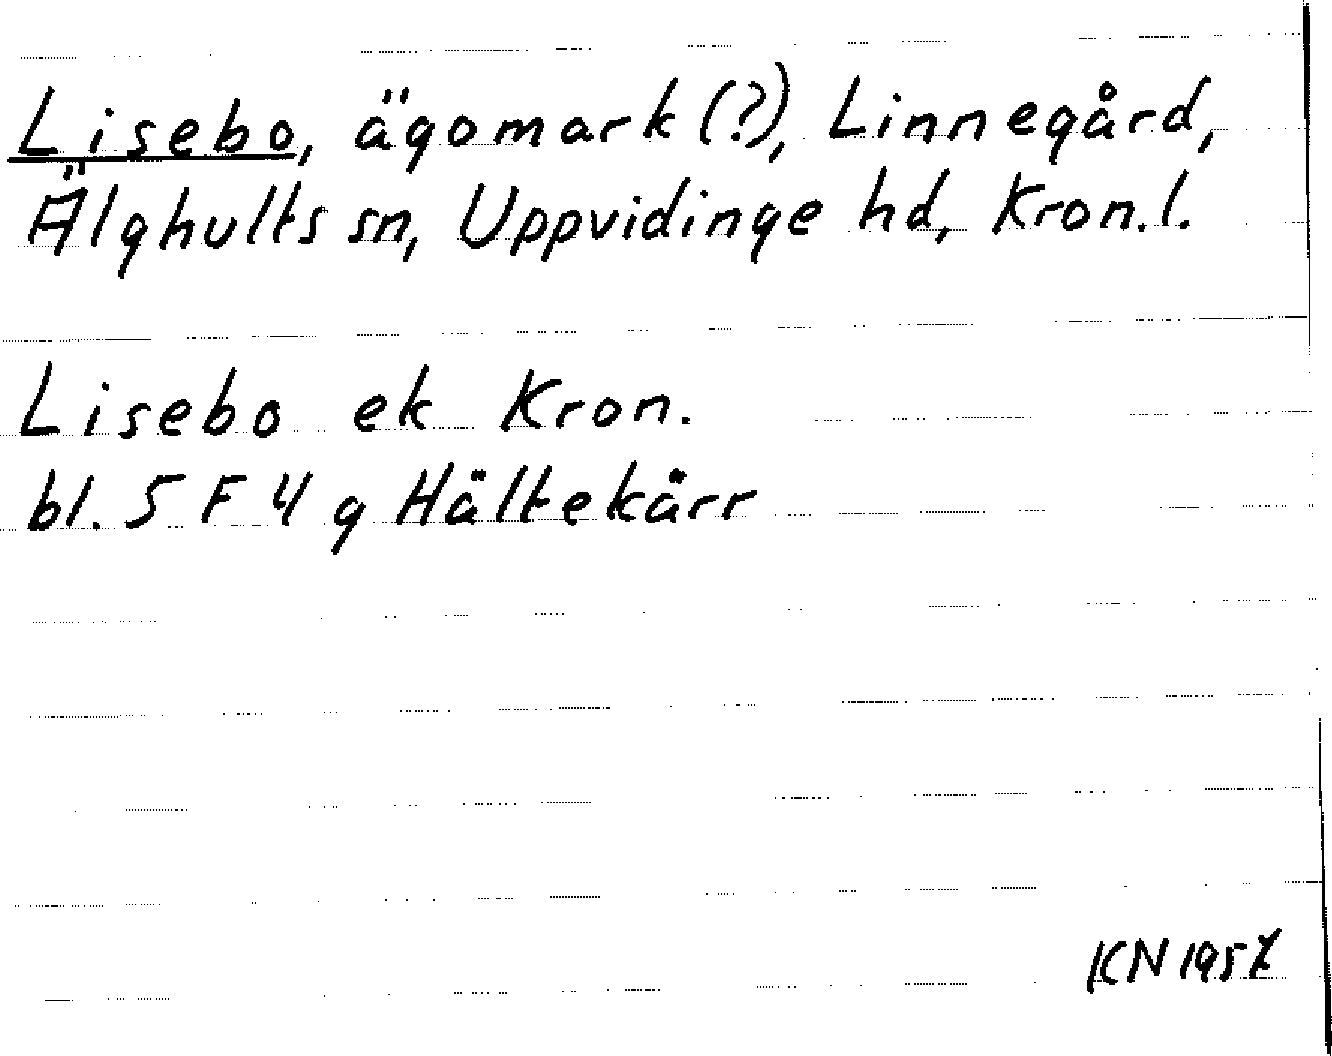 Lisebo, ägomark (?), Linnegård,
Älghults sn, Uppvidinge hd, Kron.l.
Lisebo ek Kron.
bl. 5 F 4 g Hältekärr
KN 1957